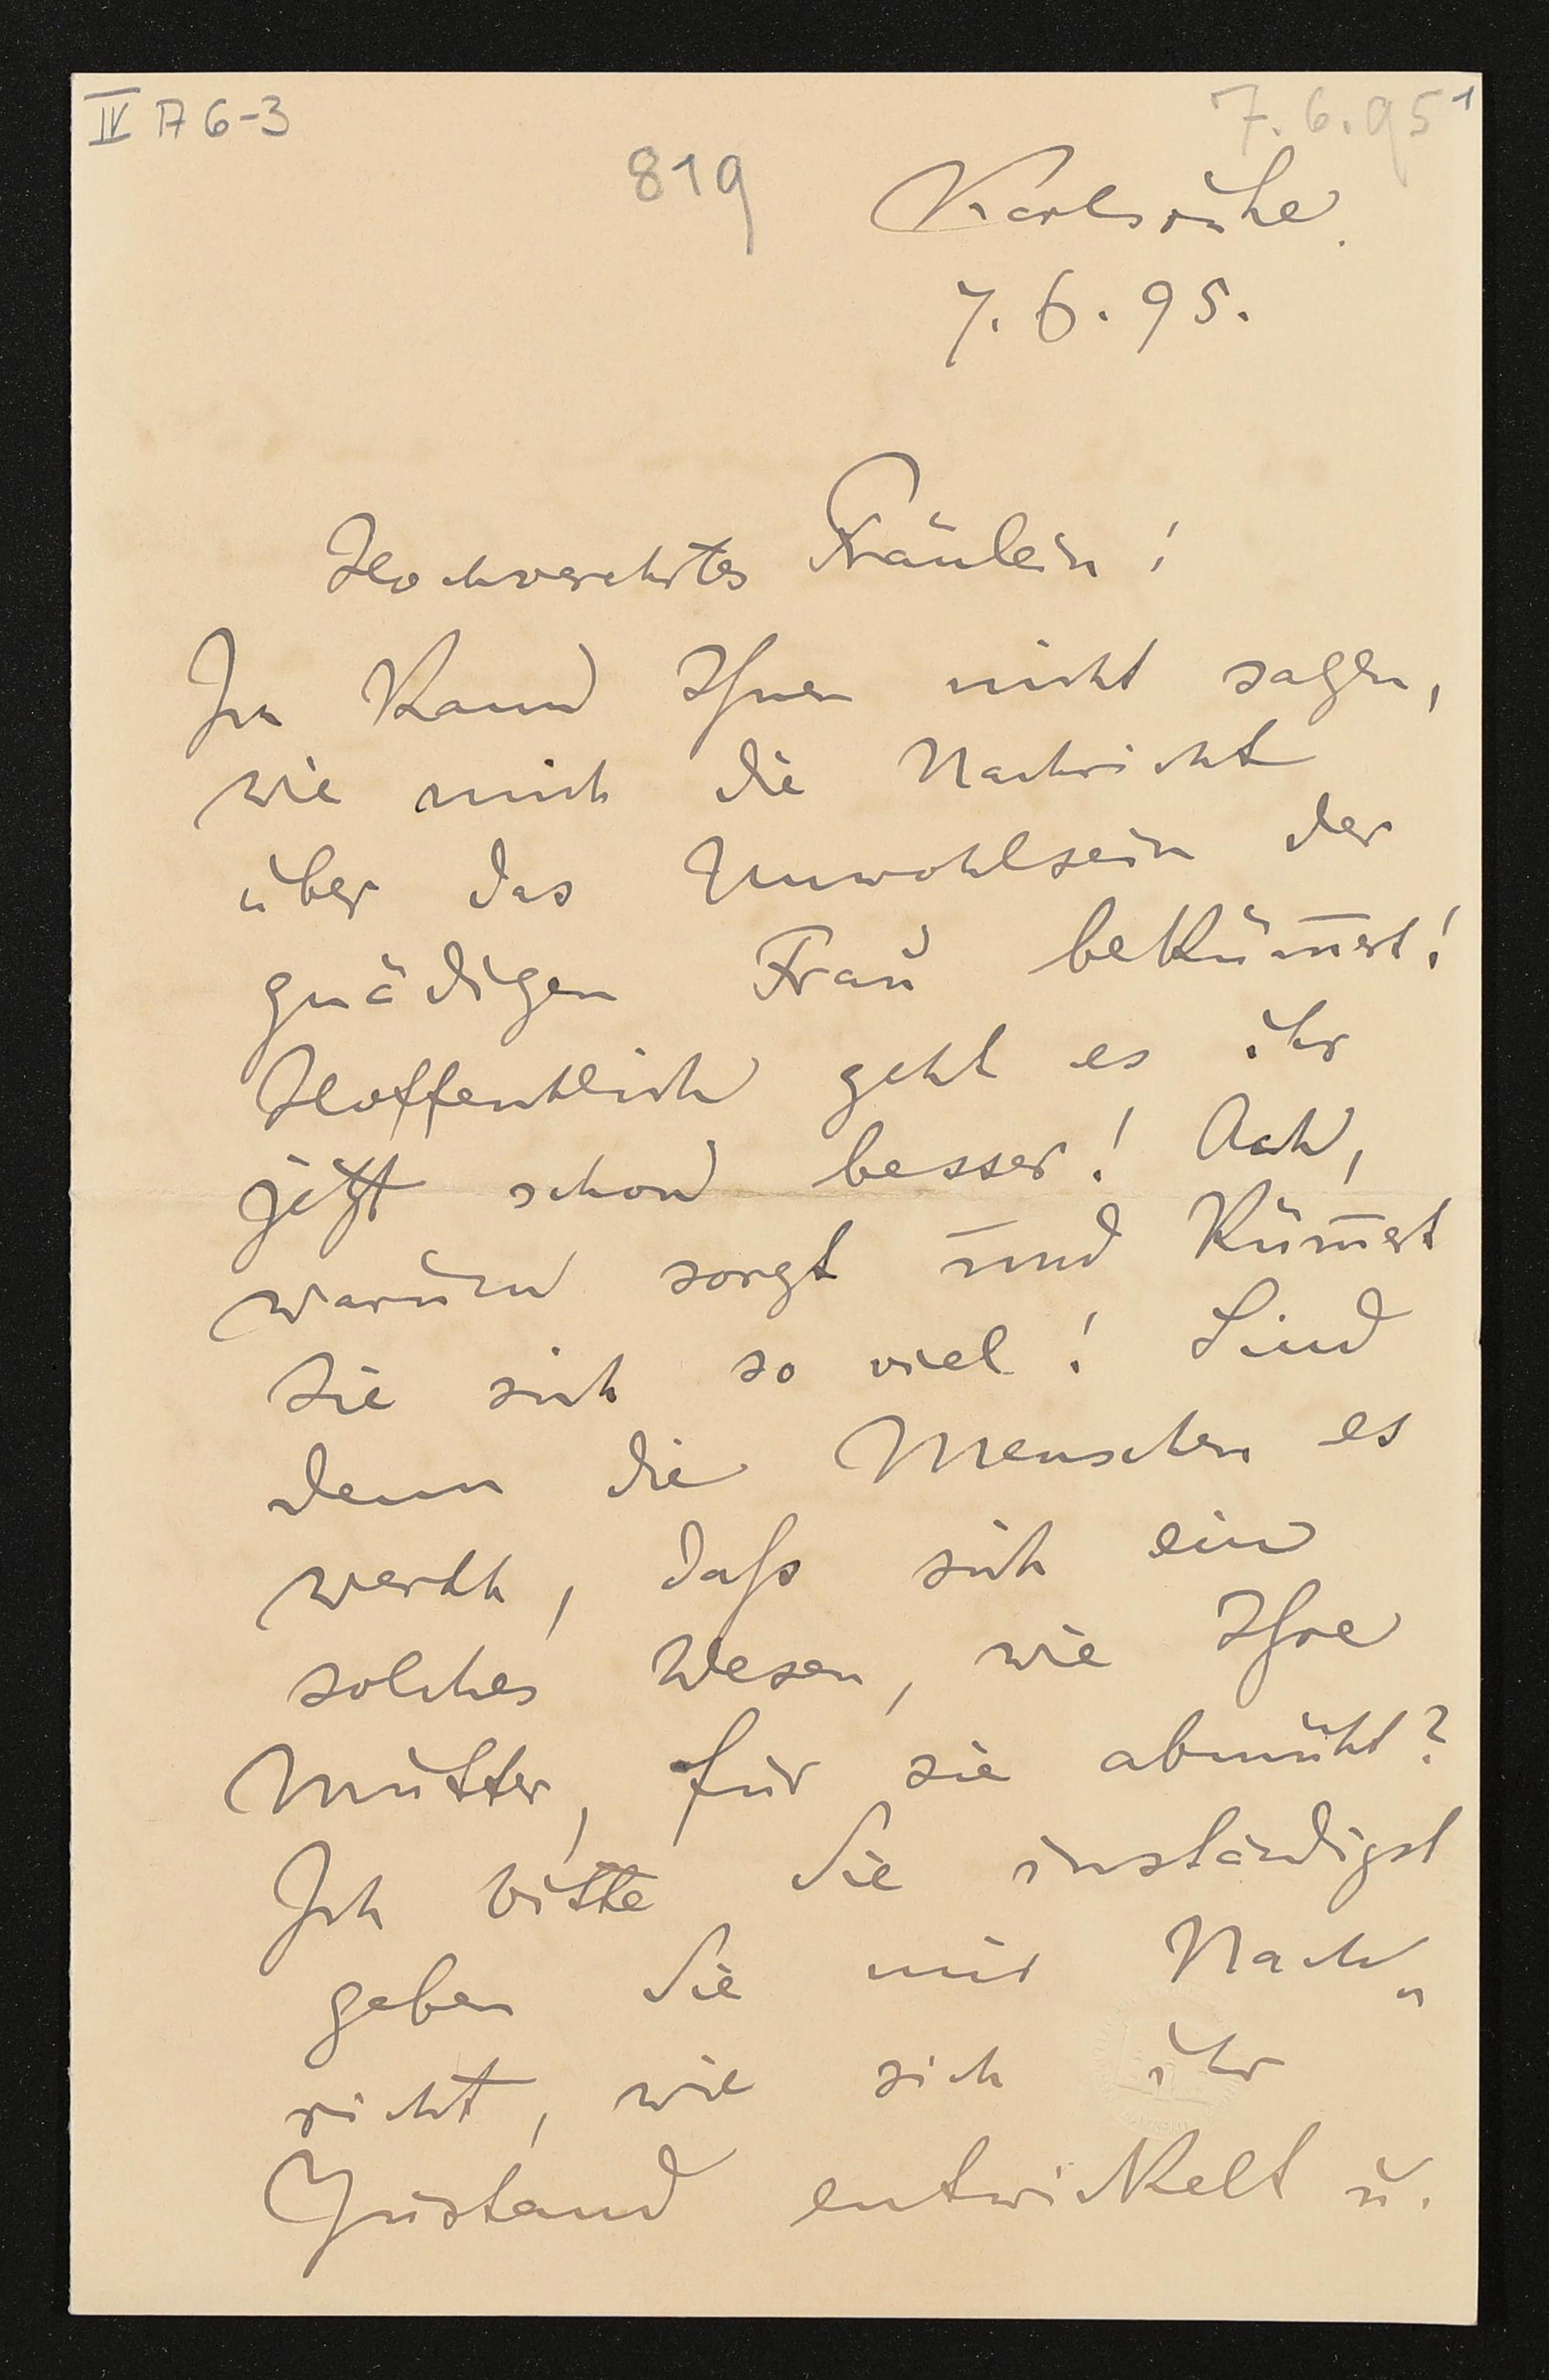 IV A 6-3
7.6.95 1
819
Karlsruhe.
7. 6. 95.
Hochverehrtes Fräulein!
Ich kann Ihnen nicht sagen,
wie mich die Nachricht
über das Unwohlsein der
gnädigen Frau beküm̅ert!
Hoffentlich geht es ihr
jetzt schon besser! Ach,
warum sorgt und küm̅ert
sie sich so viel! Sind
denn die Menschen es
werth, daſs sich ein
solches Wesen, wie Ihre
Mutter, für sie abmüht?
Ich bitte Sie inständigst
geben Sie mir Nach„
richt, wie sich ihr
Zustand entwickelt u.